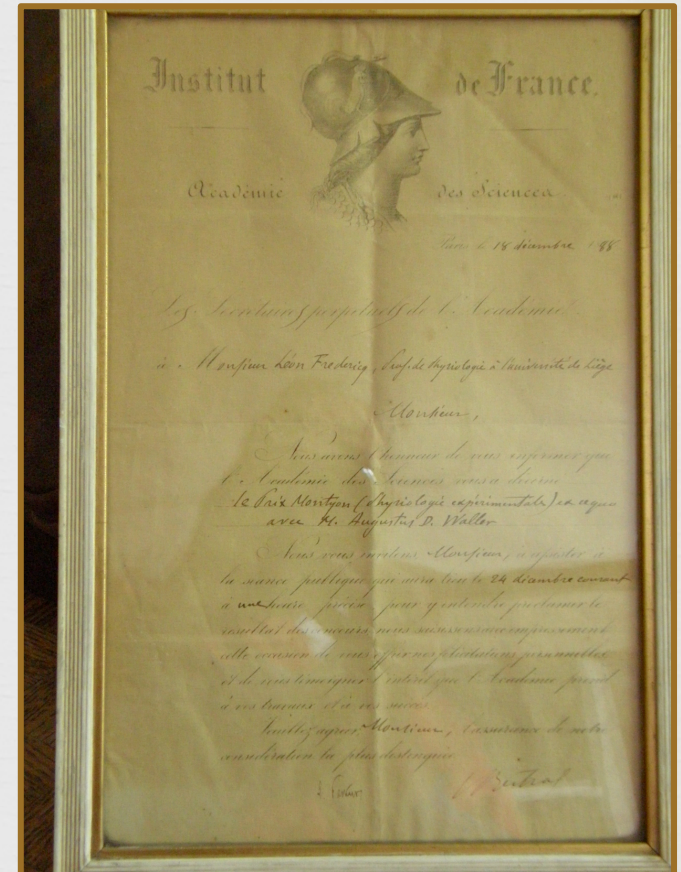 Institut de France.
Académie des Sciences
Paris, le 18 décembre 188
Les Secrétaires perpétuels de l'Académie
à Monsieur Léon Fredericq, Prof. de Physiologie à l'université de Liège
Monsieur,
Nous avons l'honneur de vous informer que
l'Académie des Sciences vous a décerné
le Prix Montyon (Physiologie expérimentale) ex æquo
avec M. Augustus D. Waller
Nous vous invitons, Monsieur, à assister à
la séance publique qui aura lieu le 24 décembre courant
à une heure précise pour y entendre proclamer le
résultat des concours, nous saisissons avec empressement
cette occasion de vous offrir nos félicitations personnelles
et de vous témoigner l'intérêt que l'Académie prend
à vos travaux et à vos succès.
Veuillez agréer, Monsieur, l'assurance de notre
considération la plus distinguée